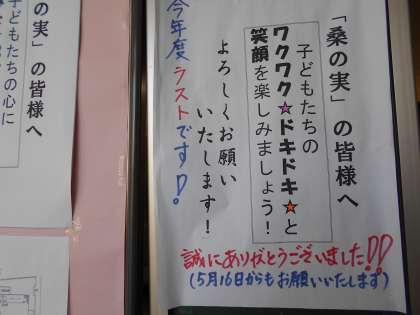 「桑の実」の皆様へ
子どもたちの
ワクワク☆ドキドキ☆と
笑顔を楽しみましょう！
よろしくお願い
いたします！
今年度ラストです！
誠にありがとうございました!!
(5月16日からもお願いいたします)
の実」の皆様へ
子どもたちの心に